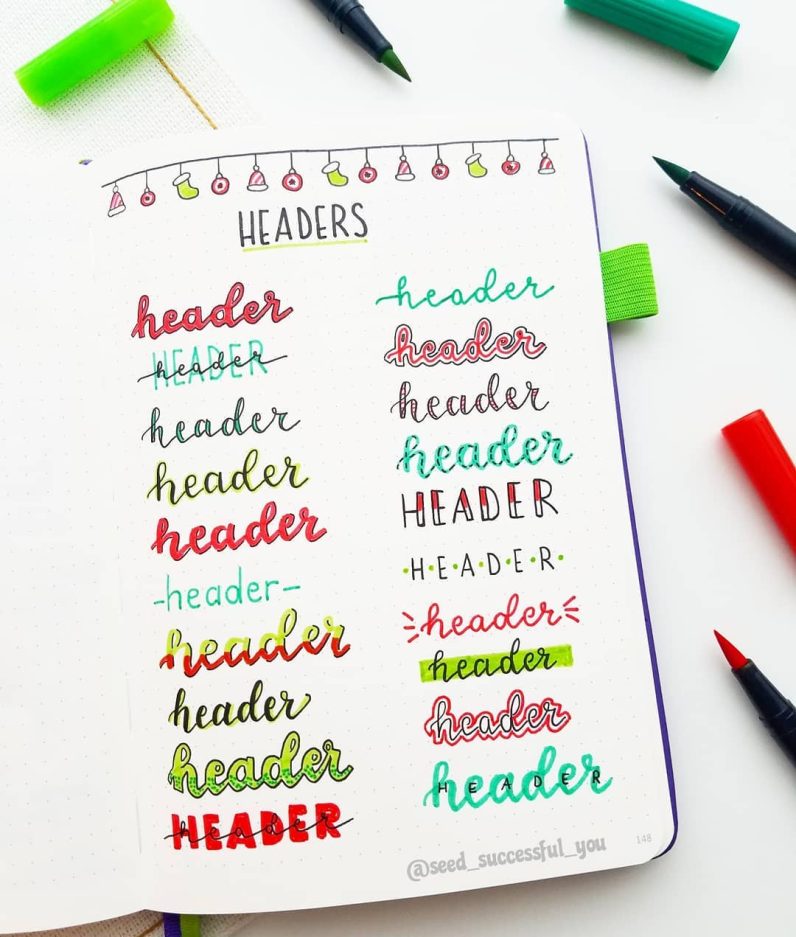 HEADERS
header
HEADER
header
header
header
header
-header-
header
header
header
HEADER
header
header
header
header
header
HEADER
·H·E·A·D·E·R·
header
header
header
header
HEADER
148
@seed_successful_you